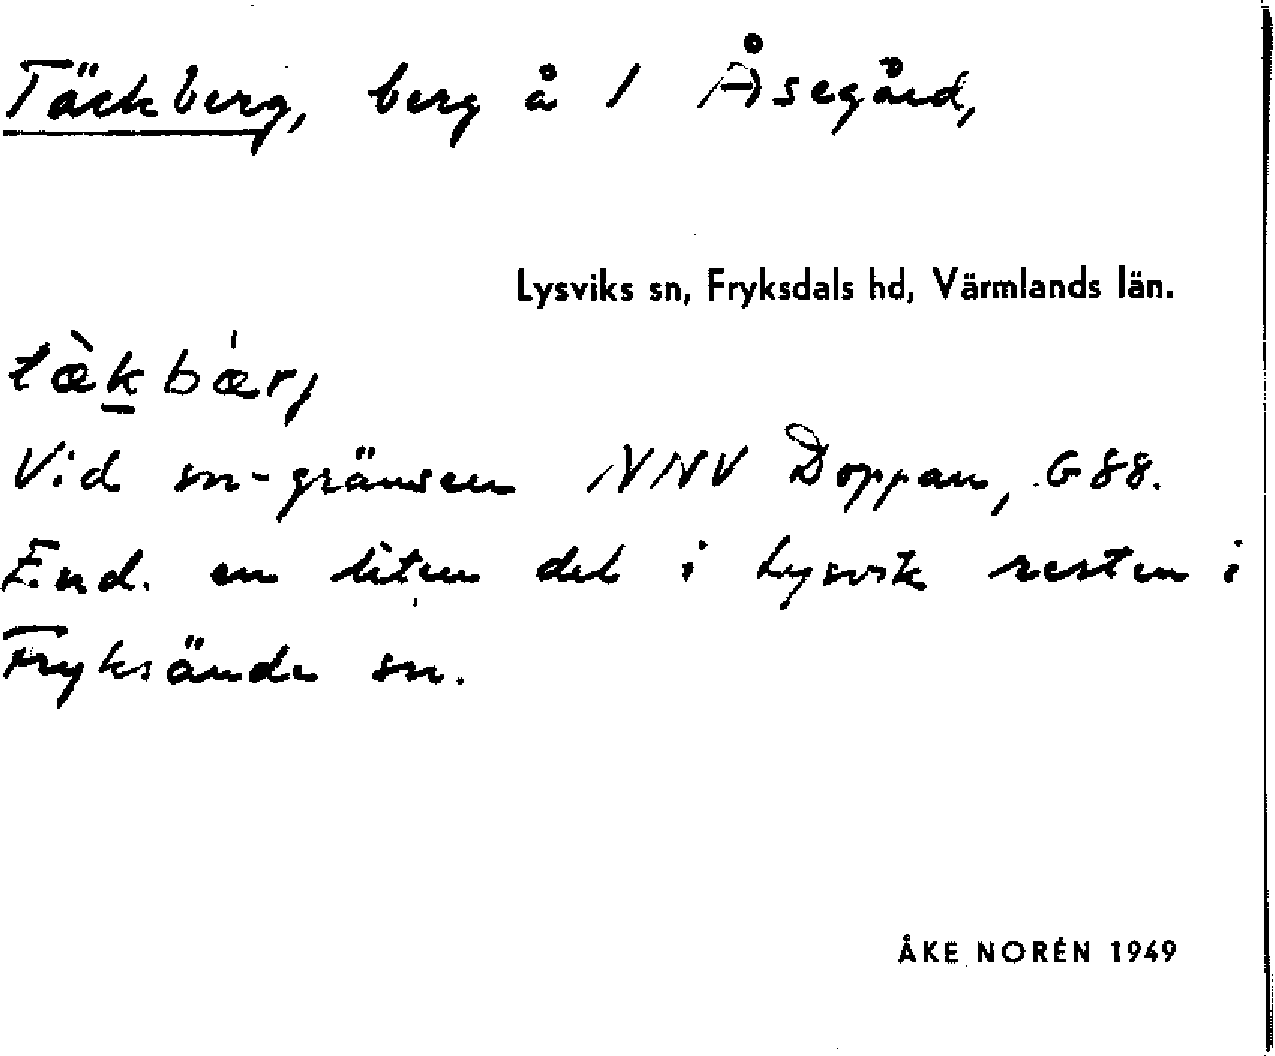 Täckberg, berg å / Åsegård,
Lysviks sn, Fryksdals hd, Värmlands län.
tæ̀kbæ̀rj
Vid sn-gränsen NNV Doppan, G88.
End. en liten del i Lysvik resten i
Fryksände sn.
ÅKE NORÉN 1949